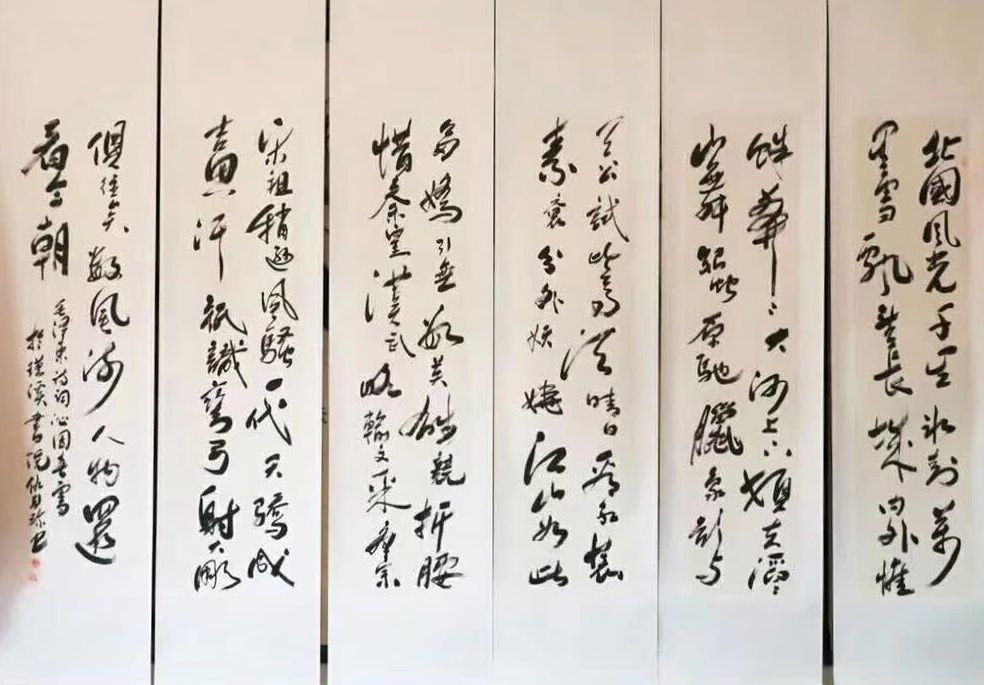 北國風光千里冰封萬
里雪飄望長城內外惟
餘莽〻大河上下頓失滔〻
山舞銀蛇原馳臘象欲与
天公試比高須晴日看紅裝
素裹分外妖嬈江山如此
多嬌引無數英雄競折腰
惜秦皇漢武略輸文采唐宗
宋祖稍遜風騷一代天驕成
吉思汗祇識彎弓射大彫
俱往矣數風流人物還
看今朝
毛澤東詩詞沁園春雪
於漢溪書院